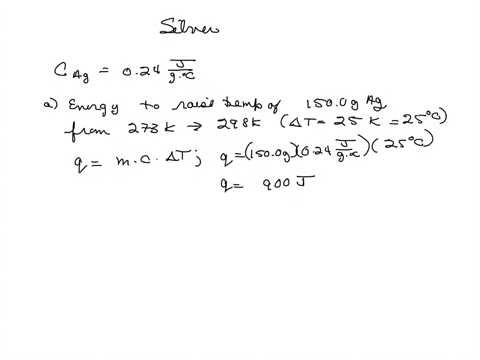 Silver
C Ag = 0.24 J/g.°C
a) Energy to raise temp of 150.0g Ag
from 273 K → 298K (ΔT= 25 K = 25°C)
q = m.C.ΔT; q=(150.0g)(0.24 J/g.°C)(25°C)
q= 900 J